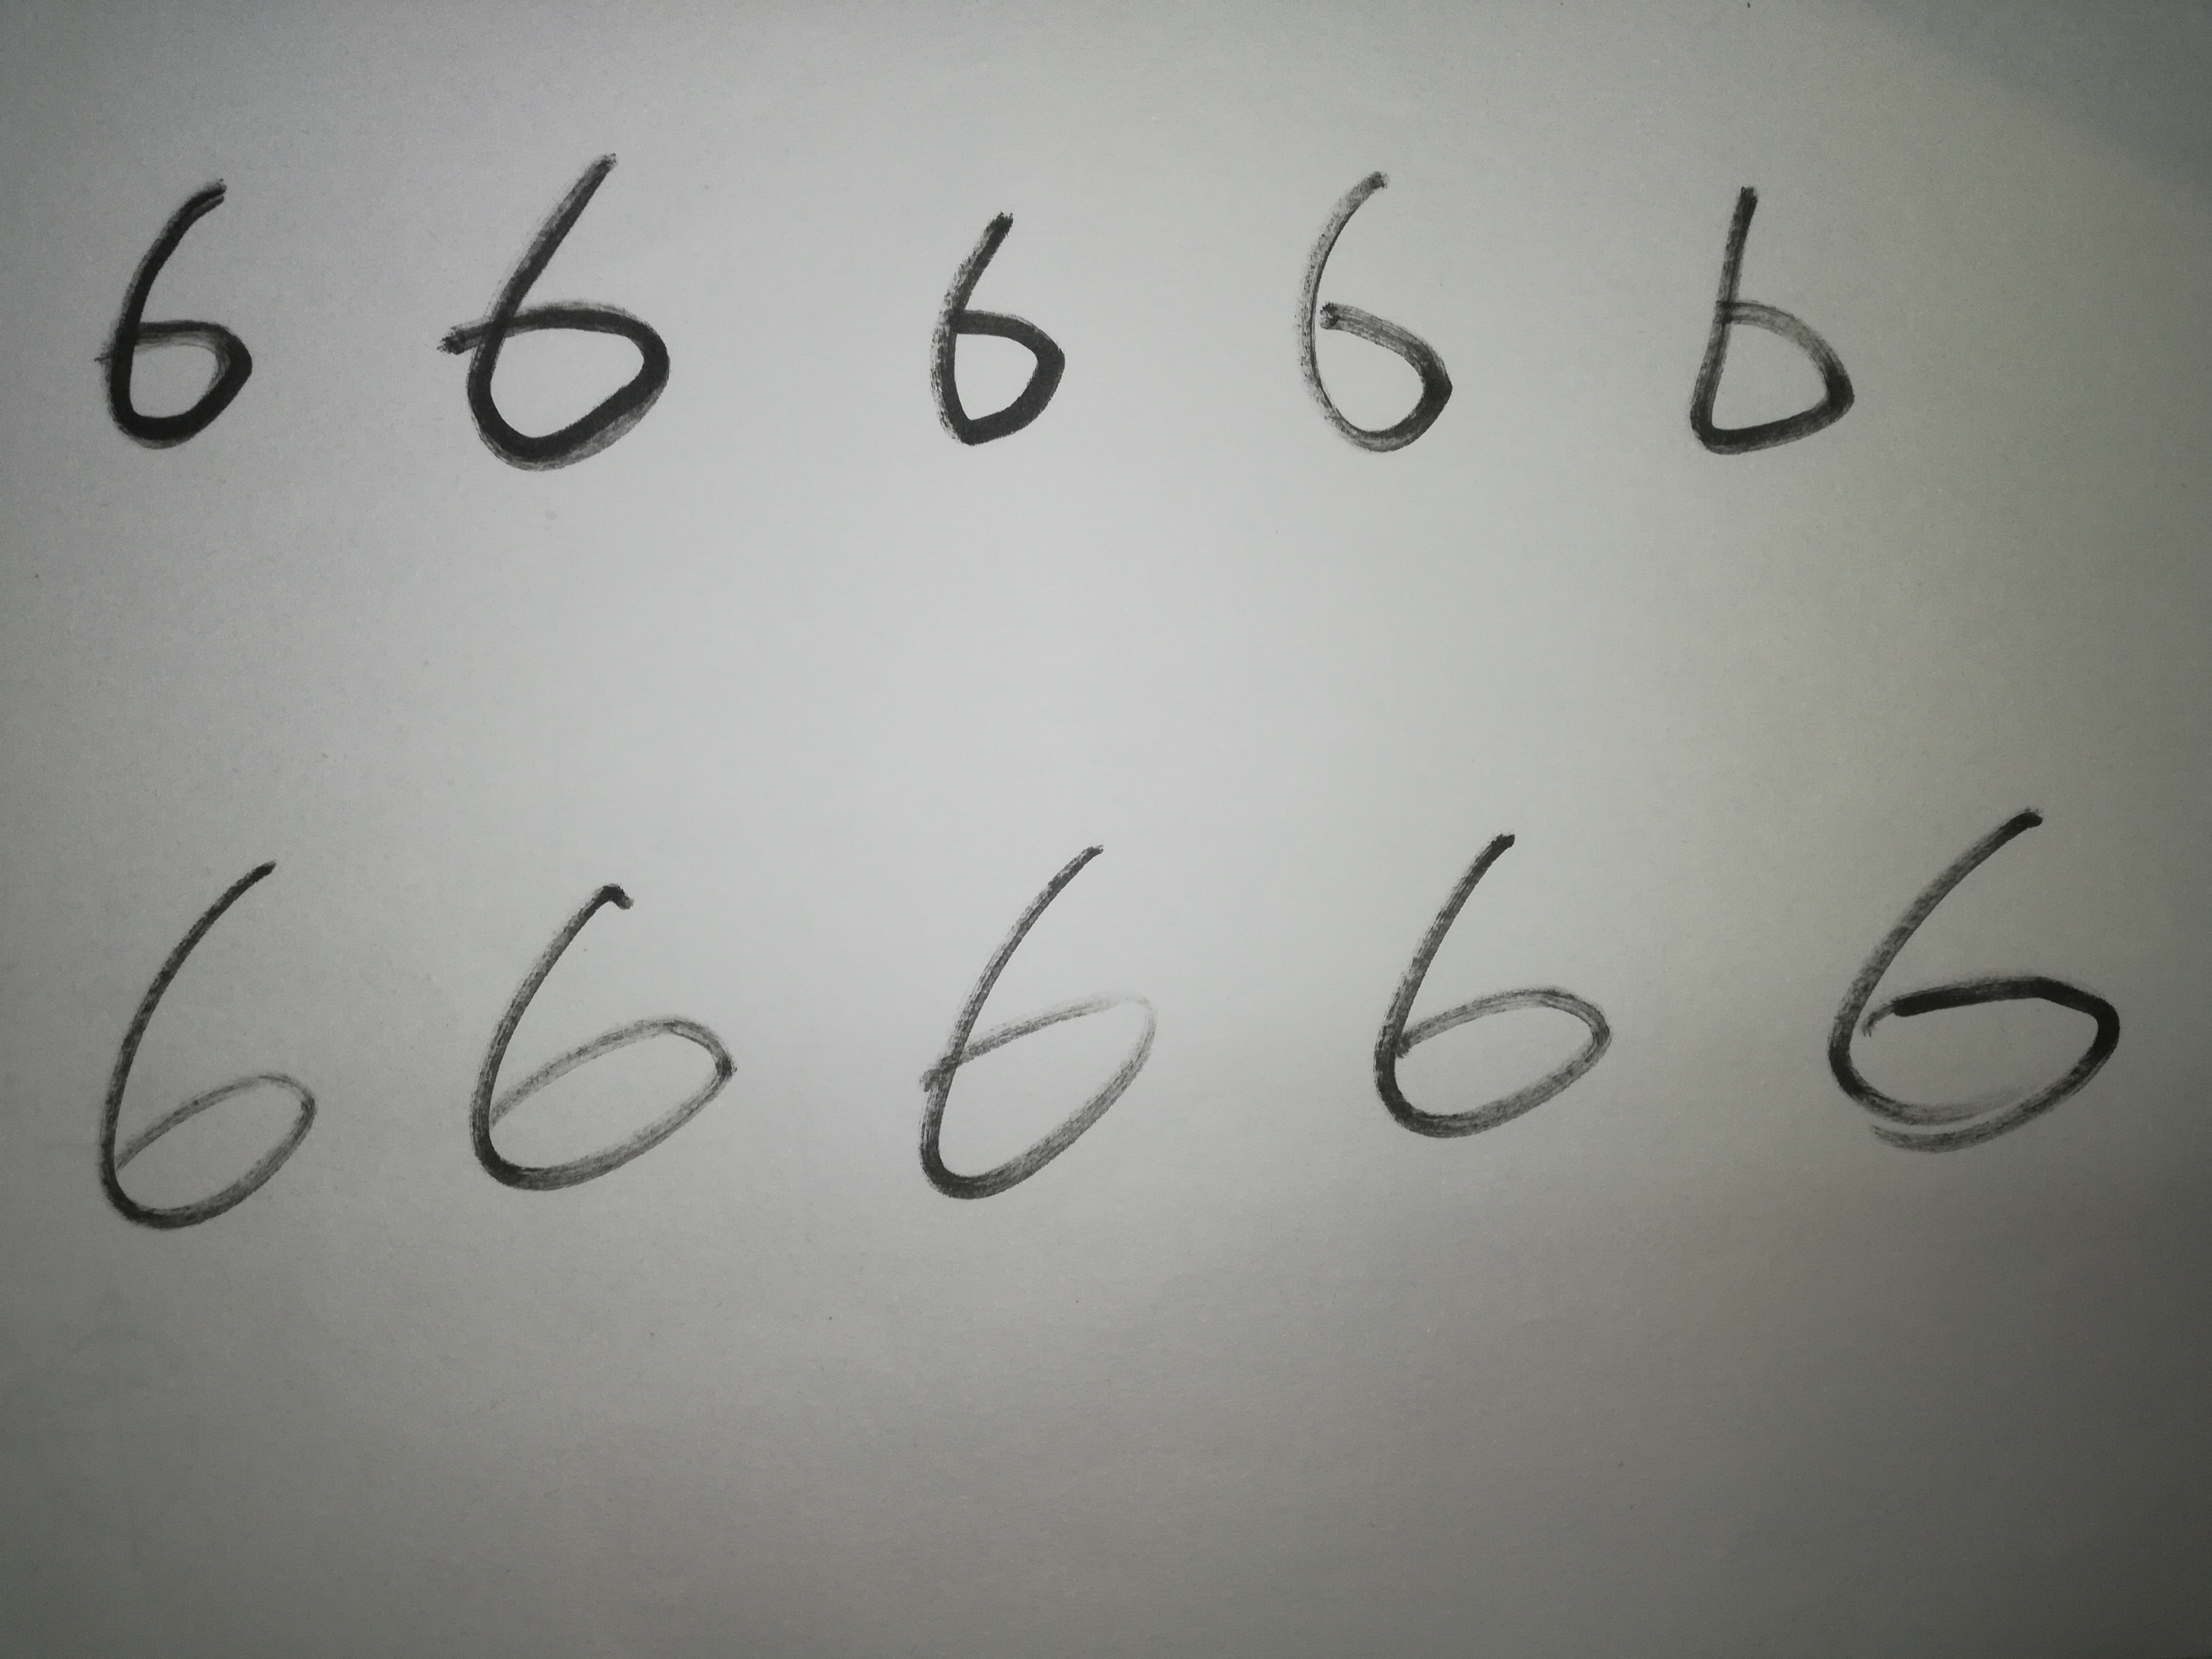 6 6 6 6 6
6 6 6 6 6